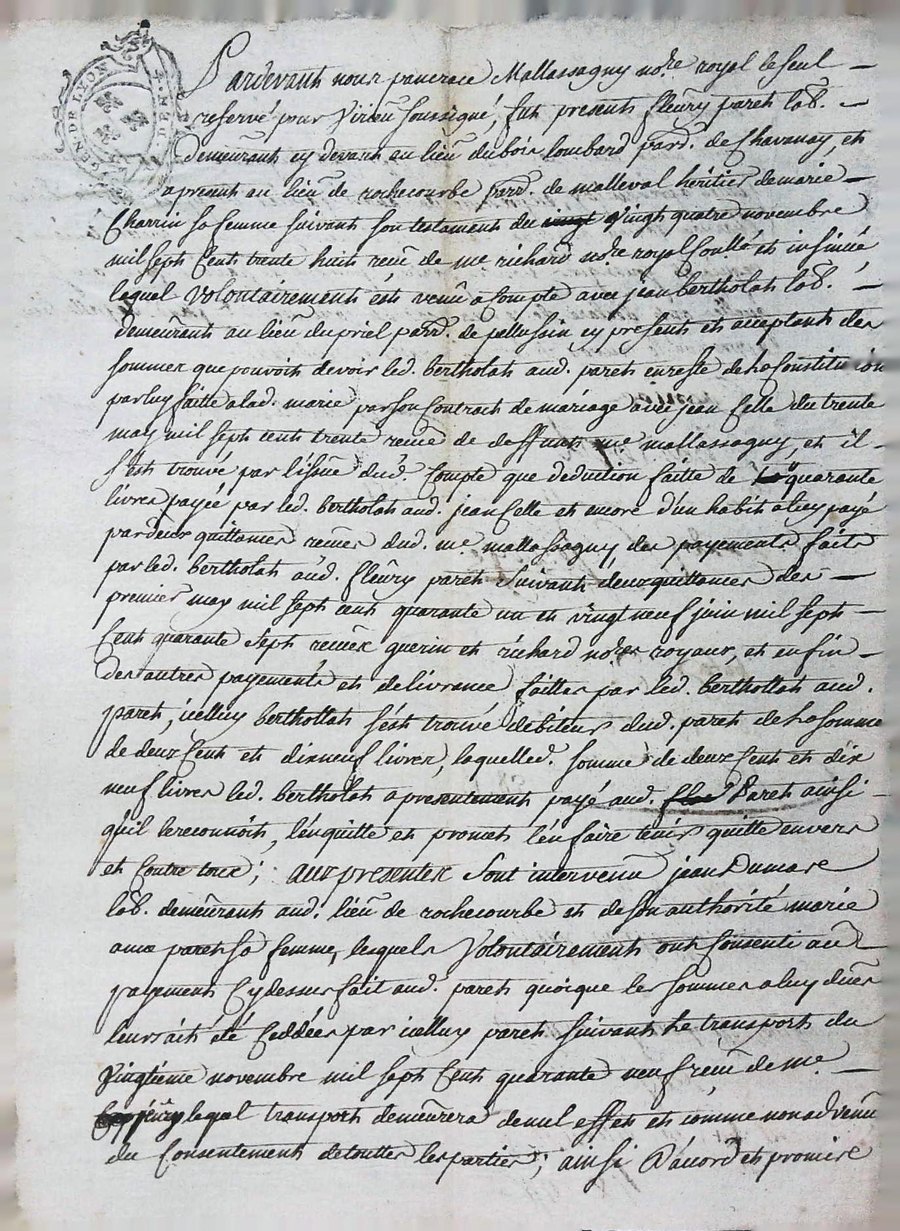 GEN. DE LYON
Pardevant nous pancrace Mallassagny no.re royal le seul
reservé pour Virieu soussigné, fut present fleury paret lab.
demeurant cy devant au lieu du bois lombard parr. de Chavanay, et
apresent au lieu de rochecourbe parr. de malleval heritier de marie
Charrin sa femme suivant son testament du vingt quatre novembre
mil sept cent trente huit receu de me richard no.re royal et insinué
lequel volontairement est venu a compte avec jean bertholat lab.
demeurant au lieu du priel parr. de pellussin, cy present et acceptant des
sommes que pouvoit devoir led. bertholat aud. paret en reste de la constitution
par luy faitte a lad. marie par son contract de mariage avec jean Celle du trente
may mil sept cent trente receu de deffunt me mallassagny, et il
s'est trouvé par l'issüe dud. compte que deduction faitte de quarante
livres payée par led. bertholat aud. jean Celle et encore d'un habit a luy payé
par deux quittances receues dud. me mallassagny, des payements faits
par led. bertholat aud. fleury paret suivant deux quittances des
premier may mil sept cent quarante un et vingt neuf juin mil sept
cent quarante sept receues guerin et richard no.res royaux, et enfin
des autres payements et delivrance faittes par led. berthollat aud.
paret, icelluy berthollat s'est trouvé debiteur dud. paret de la somme
de deux cent et dix neuf livres, laquelle d. somme de deux cent et dix
neuf livres led. bertholat a presentement payé aud. Paret ainsi
qu'il le reconnoit, l'en quitte et promet l'en faire tenir quitte envers
et contre tous; aux presentes sont intervenu jean Dumas
lab. demeurant aud. lieu de rochecourbe et de son authorité marie
anne paret sa femme, lesquels volontairement ont consenti au
payement cy dessus fait aud. paret quoique les sommes a luy dues
leurs ait été ceddées par icelluy paret suivant le transport du
vingtieme novembre mil sept cent quarante neuf receu de me
lequel transport demeurera de nul effet et comme non advenu
du consentement de touttes les parties; ainsi d'accord et promis